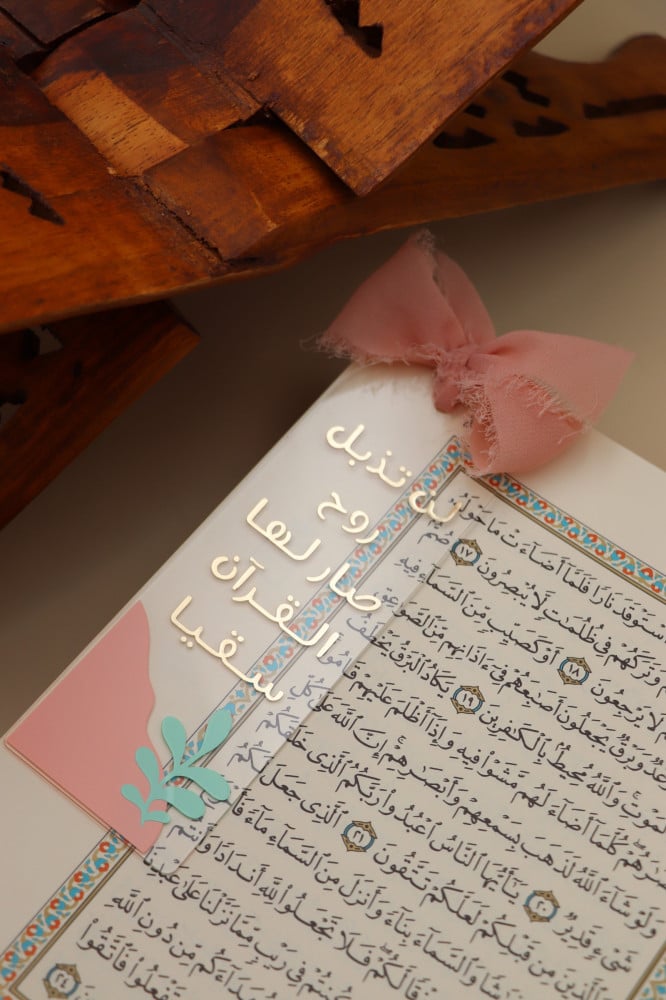 لن تذبل
روح
صار لها
القرآن
سقيا
نَارًا فَلَمَّآ أَضَآءَتْ مَا حَوْلَهُۥ
وَتَرَكَهُمْ فِى ظُلُمَٰتٍ لَّا يُبْصِرُونَ ١٧ صُمٌّ
لَا يَرْجِعُونَ ١٨ أَوْ كَصَيِّبٍ مِّنَ ٱلسَّمَآءِ فِيهِ
وَرَعْدٌ وَبَرْقٌ يَجْعَلُونَ أَصَٰبِعَهُمْ فِىٓ ءَاذَانِهِم مِّنَ
ٱلْمَوْتِ وَٱللَّهُ مُحِيطٌۢ بِٱلْكَٰفِرِينَ ١٩ يَكَادُ ٱلْبَرْقُ يَخْطَفُ
كُلَّمَآ أَضَآءَ لَهُم مَّشَوْا۟ فِيهِ وَإِذَآ أَظْلَمَ عَلَيْهِمْ قَامُوا۟
وَلَوْ شَآءَ ٱللَّهُ لَذَهَبَ بِسَمْعِهِمْ وَأَبْصَٰرِهِمْ إِنَّ ٱللَّهَ عَلَىٰ كُلِّ
شَىْءٍ قَدِيرٌ ٢٠ يَٰٓأَيُّهَا ٱلنَّاسُ ٱعْبُدُوا۟ رَبَّكُمُ ٱلَّذِى خَلَقَكُمْ
وَٱلَّذِينَ مِن قَبْلِكُمْ لَعَلَّكُمْ تَتَّقُونَ ٢١ ٱلَّذِى جَعَلَ لَكُمُ
وَٱلسَّمَآءَ بِنَآءً وَأَنزَلَ مِنَ ٱلسَّمَآءِ مَآءً
لَّكُمْ فَلَا تَجْعَلُوا۟ لِلَّهِ أَندَادًا وَأَنتُمْ
كُنتُمْ فِى رَيْبٍ مِّمَّا نَزَّلْنَا عَلَىٰ عَبْدِنَا
شُهَدَآءَكُم مِّن دُونِ ٱللَّهِ
تَفْعَلُوا۟ فَٱتَّقُوا۟
٢٤